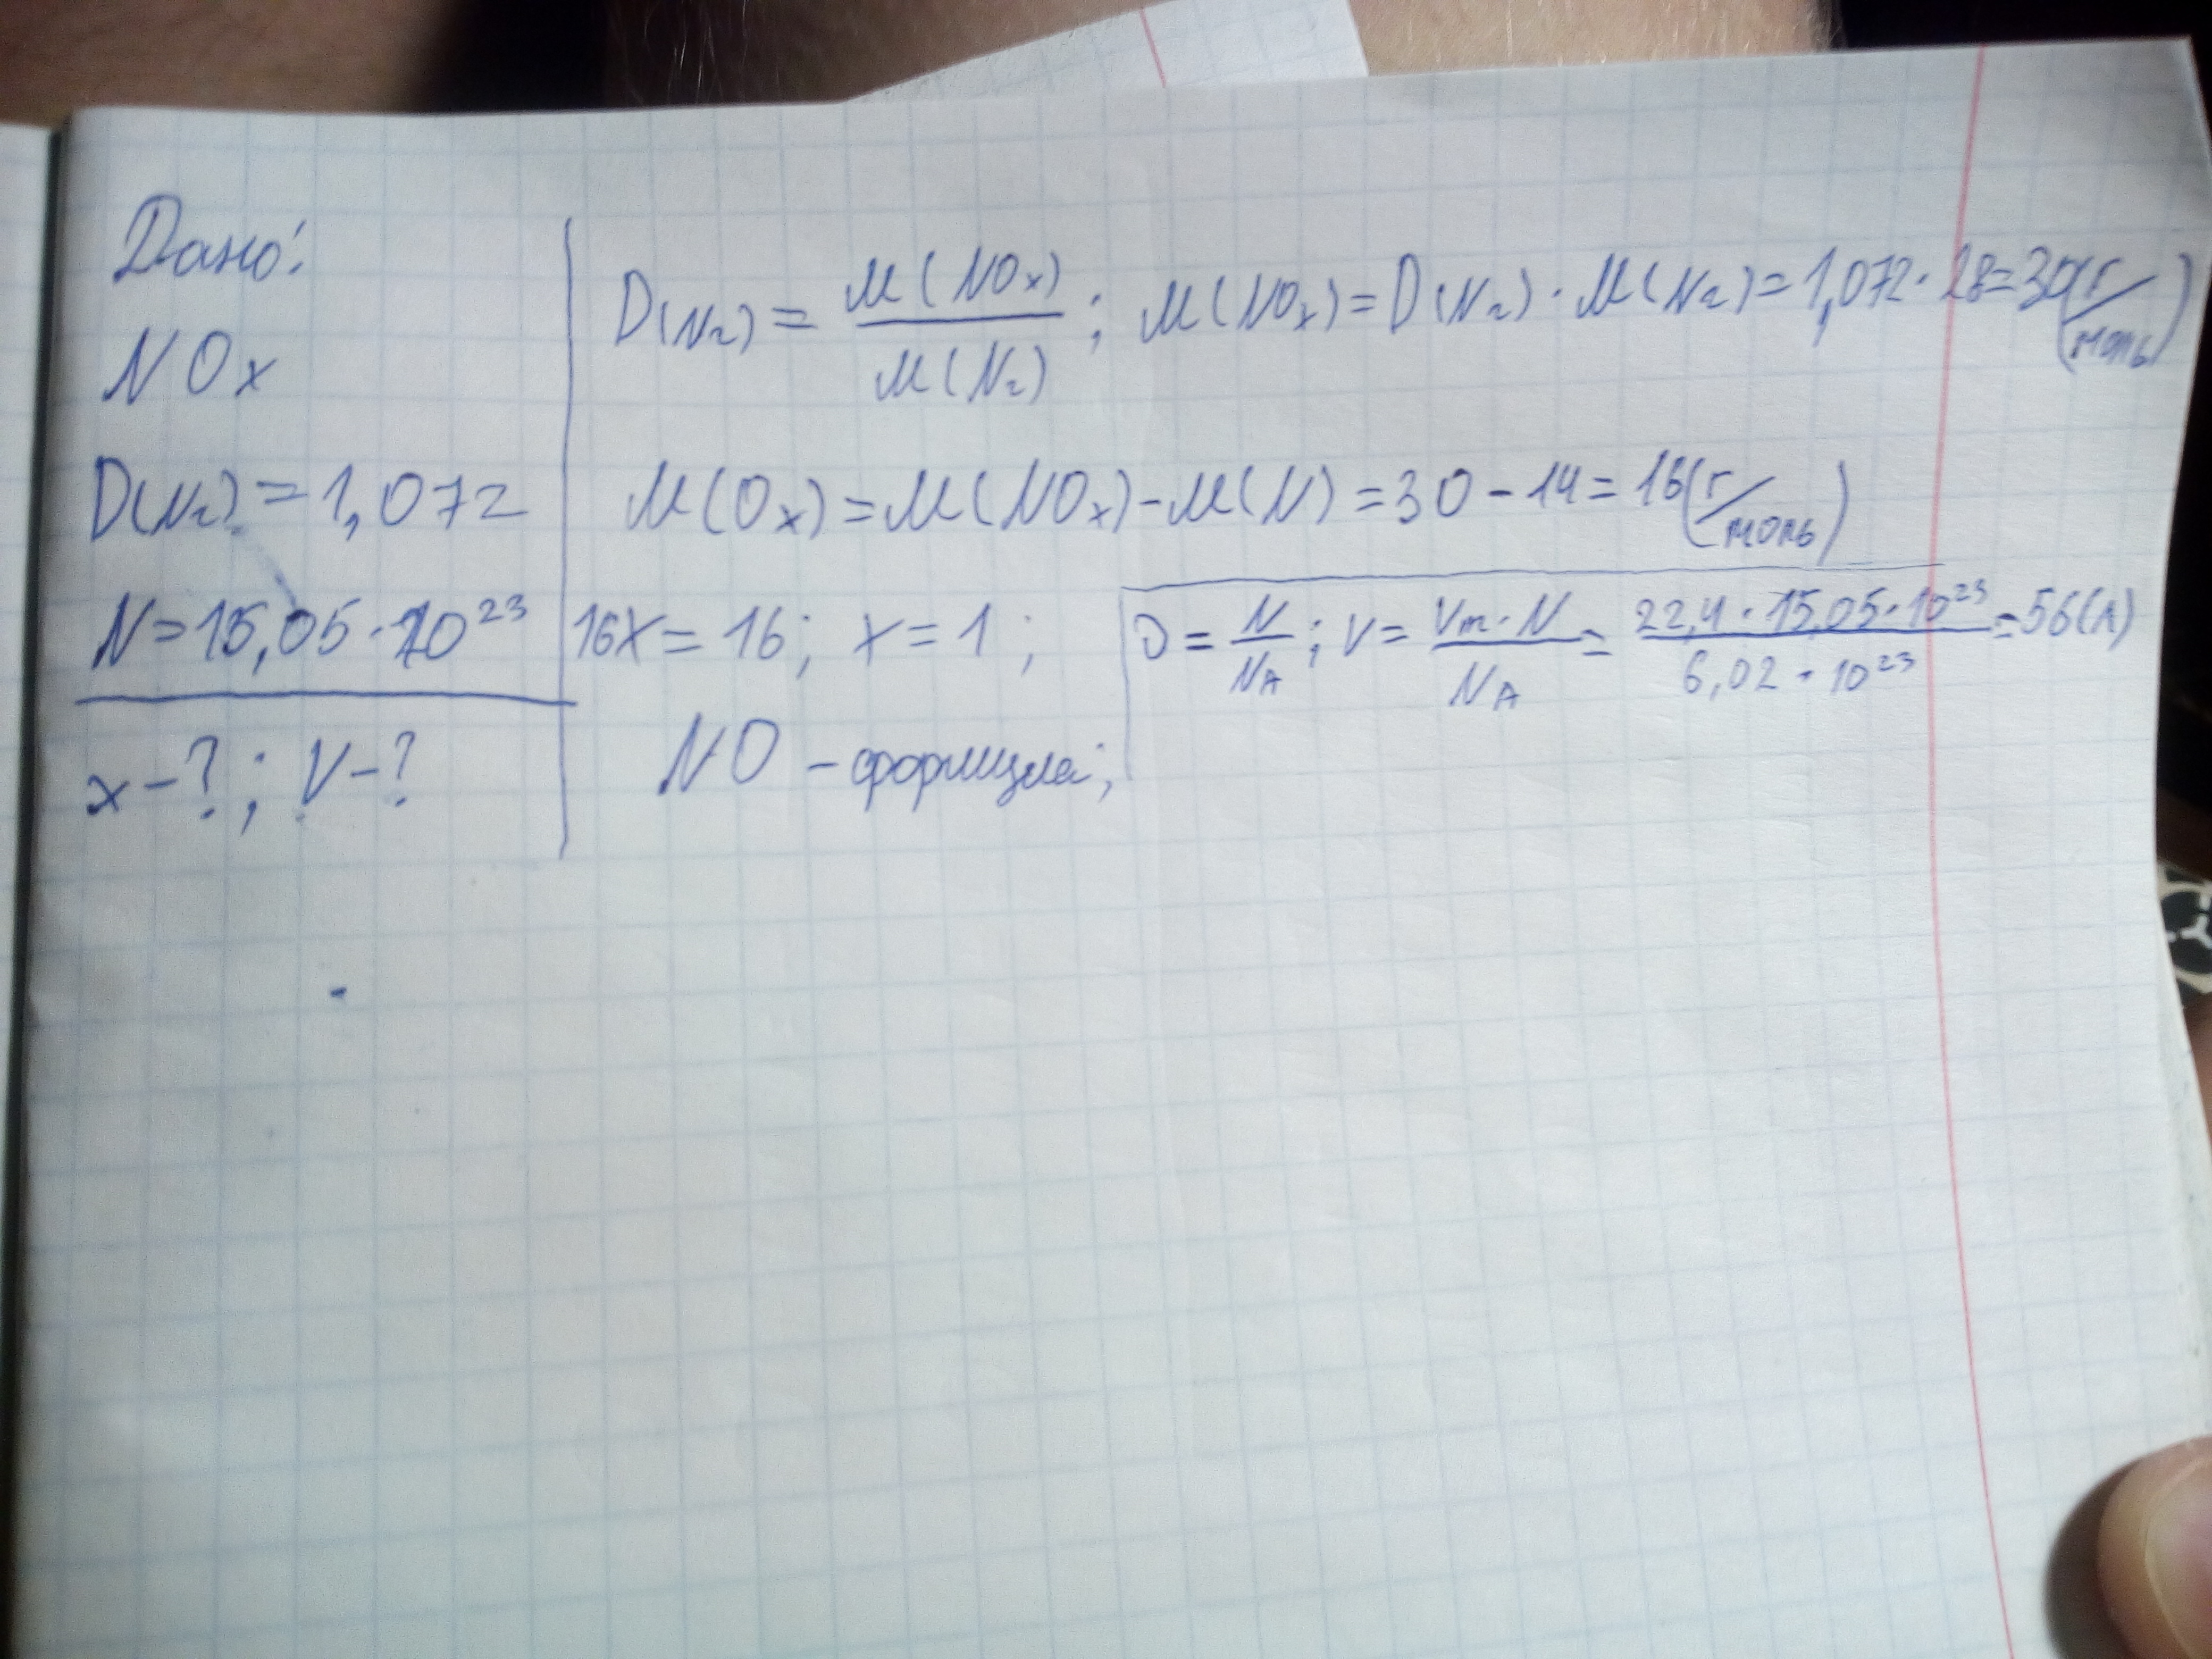 Дано:
NOx
D(N₂) = 1,072
N = 15,05 · 10²³
x - ? ; V - ?
D(N₂) = M(NOx) / M(N₂) ; M(NOx) = D(N₂) · M(N₂) = 1,072 · 28 = 30 (г/моль)
M(Ox) = M(NOx) - M(N) = 30 - 14 = 16 (г/моль)
16x = 16; x = 1 ;
NO - формула;
υ = N / N_A ; V = Vm · N / N_A = 22,4 · 15,05 · 10²³ / 6,02 · 10²³ = 56 (л)